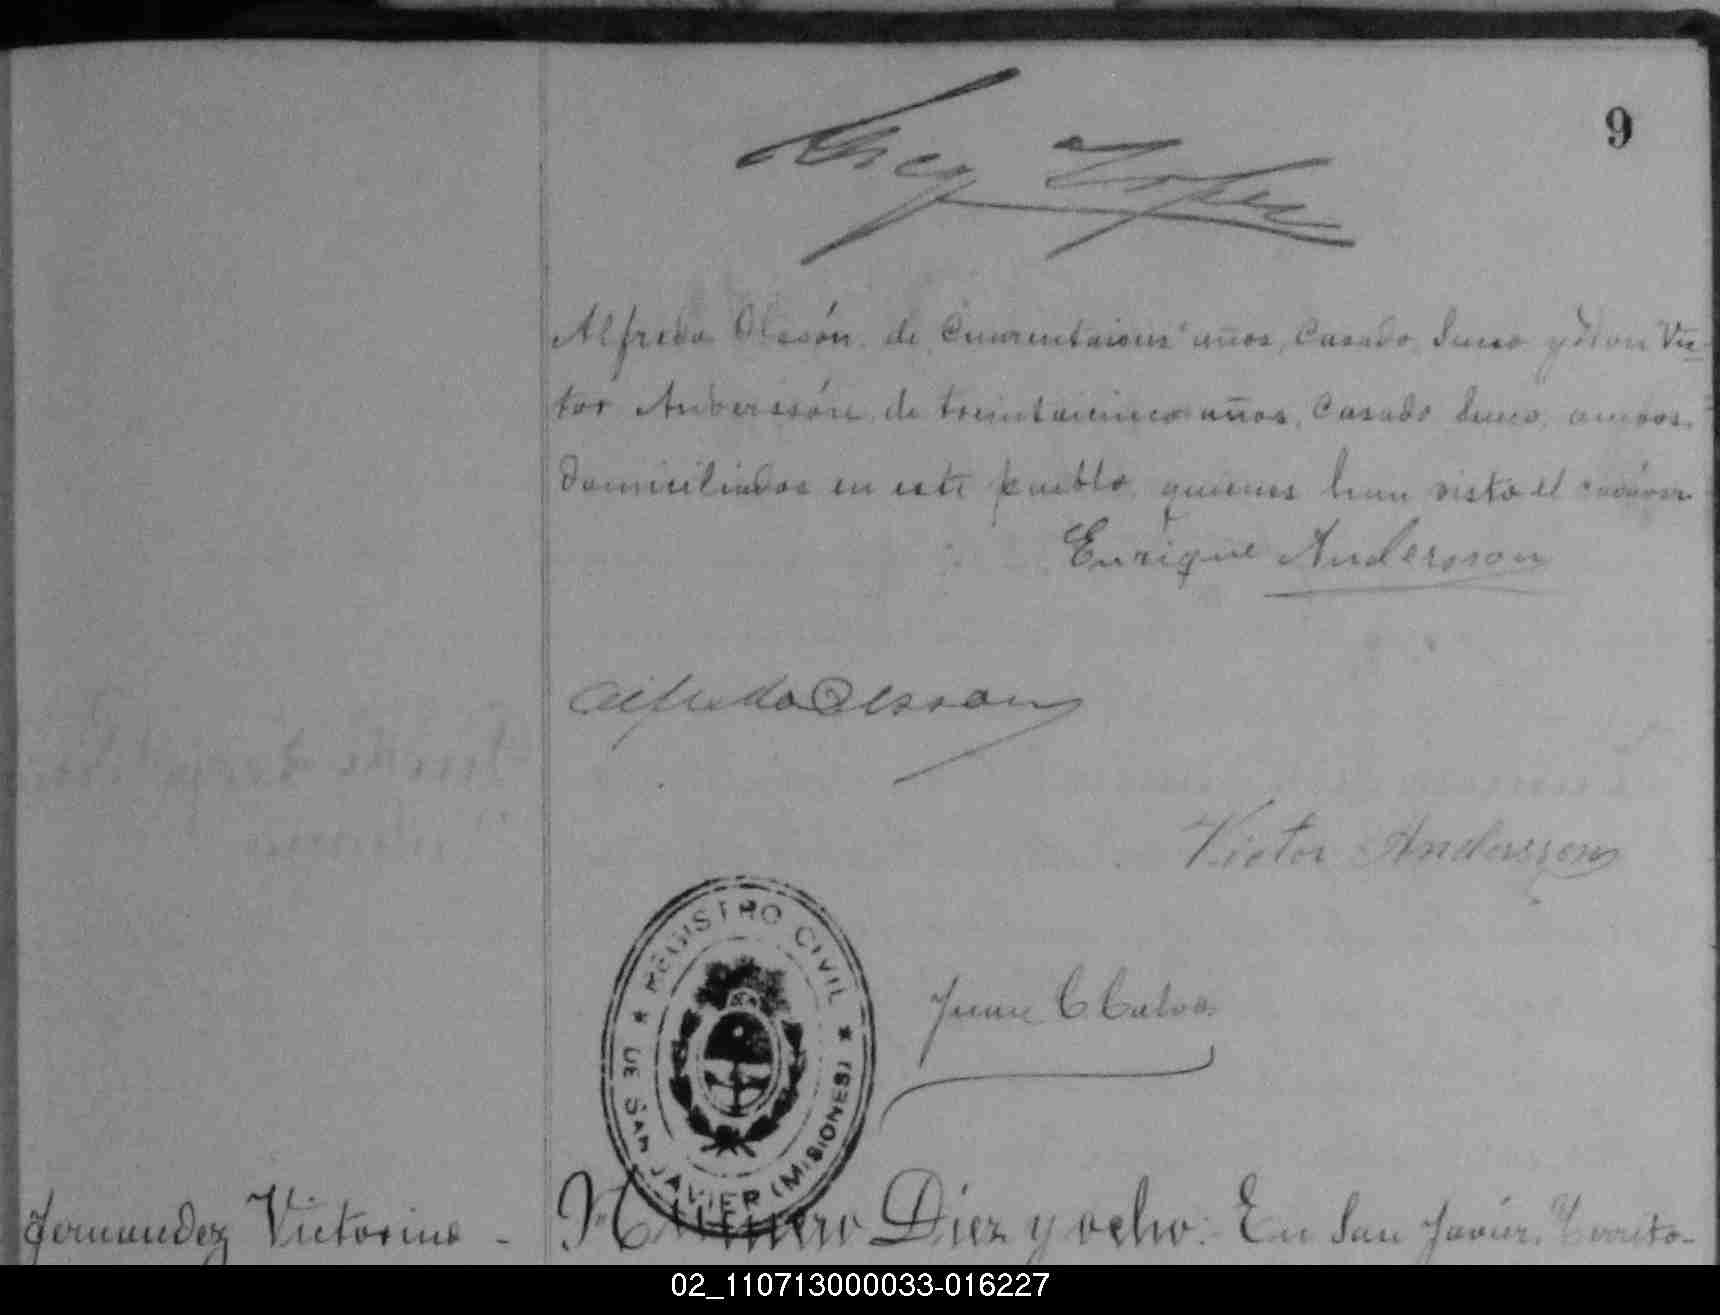 9
Lopez
Alfredo Olssón, de Cuarentaiun años, Casado, Sueco y Don Vic-
tor Anderssón, de treintaicinco años, Casado Sueco, ambos
domiciliados en este pueblo, quienes han visto el cadáver
Enrique Andersson
Alfredo Olsson
Victor Andersson
REGISTRO CIVIL
★ DE SAN JAVIER (MISIONES) ★
Juan C Calvo
Fernandez Victorino -
Número Diez y ocho: En San Javier, Territo-
02_110713000033-016227